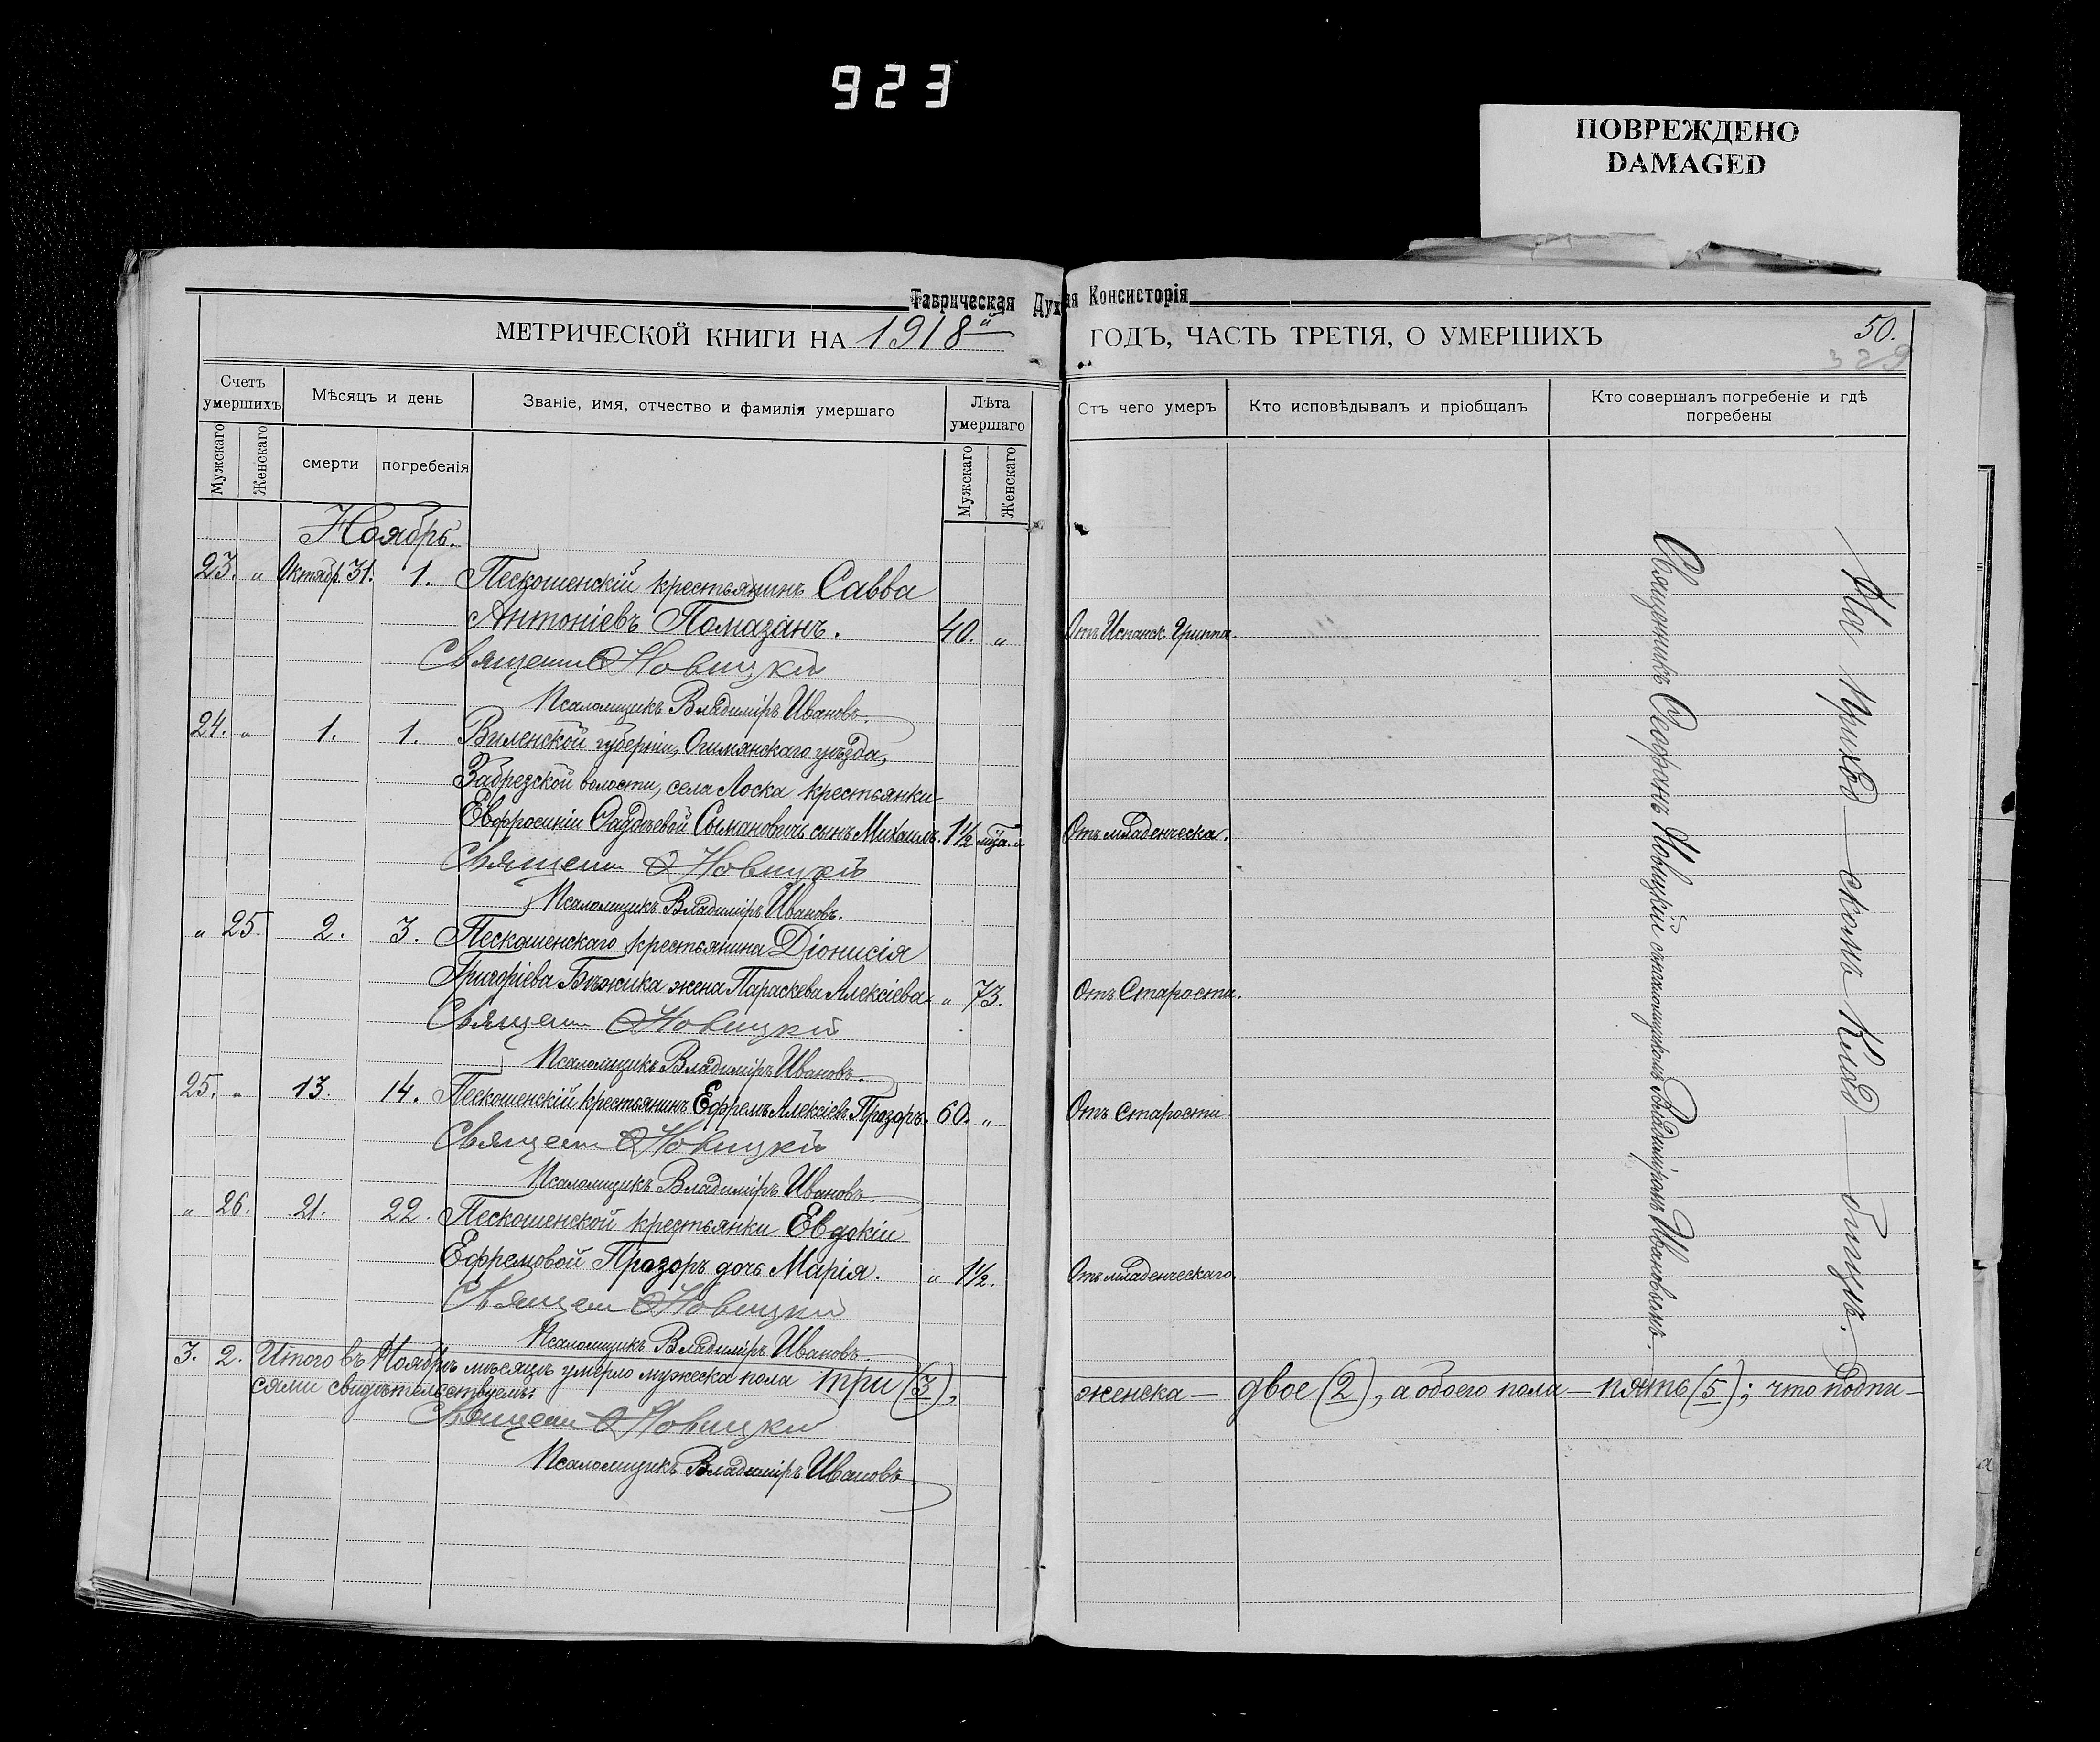 923
ПОВРЕЖДЕНО
DAMAGED
Таврическая Дух ая Консисторія
МЕТРИЧЕСКОЙ КНИГИ НА 1918й ГОДЪ, ЧАСТЬ ТРЕТІЯ, О УМЕРШИХЪ
50.
329
Счетъ умершихъ
Мѣсяцъ и день
Званіе, имя, отчество и фамилія умершаго
Лѣта умершаго
Отъ чего умеръ
Кто исповѣдывалъ и пріобщалъ
Кто совершалъ погребеніе и гдѣ погребены
Мужскаго
Женскаго
смерти
погребенія
Мужскаго
Женскаго
Ноябрь.
23. " Октябр. 31. 1. Пескошенскій крестьянинъ Савва
Антоніевъ Помазанъ. 40. " Отъ Испанск. Гриппа.
Священн. Ѳ Новицкій
Псаломщикъ Владиміръ Ивановъ.
24. " 1. 1. Виленской губерніи, Ошмянскаго уѣзда,
Забрезской волости, села Лоска крестьянки
Евфросиніи Фаддѣевой сынъ Михаилъ. 1½ мѣс. " Отъ младенческа.
Священн Ѳ Новицкій
Псаломщикъ Владиміръ Ивановъ.
" 25. 2. 3. Пескошенскаго крестьянина Діонисія
Григоріева Бѣжика жена Параскева Алексіева. " 73. Отъ Старости.
Священн Ѳ Новицкій
Псаломщикъ Владиміръ Ивановъ.
25. " 13. 14. Пескошенскій крестьянинъ Ефремъ Алексіевъ Прозоръ. 60. " Отъ старости
Священн Ѳ Новицкій
Псаломщикъ Владиміръ Ивановъ.
" 26. 21. 22. Пескошенской крестьянки Евдокіи
Ефремовой Прозоръ дочь Марія. " 1½. Отъ младенческаго.
Священ Ѳ Новицкій
Псаломщикъ Владиміръ Ивановъ.
3. 2. Итого въ Ноябрѣ мѣсяцѣ умерло мужеска пола три (3), женска — двое (2), а обоего пола — пять (5); что подпи-
сями свидѣтельствуемъ:
Священн Ѳ Новицкій
Псаломщикъ Владиміръ Ивановъ
Священникъ Новицкій съ псаломщикомъ Владиміромъ Ивановымъ.
На Приход — скомъ Клад — бищѣ.